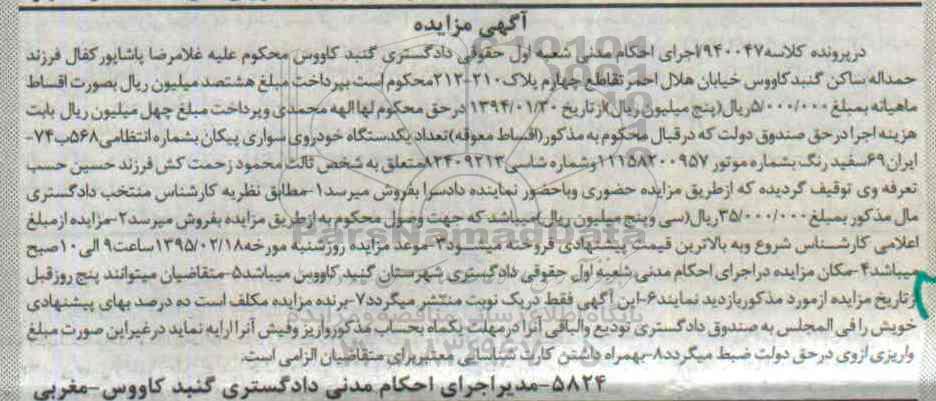 آگهی مزایده
درپرونده کلاسه۹۴۰۰۴۷اجرای احکام مدنی شعبه اول حقوقی دادگستری گنبد کاووس محکوم علیه غلامرضا پاشاپورکفال فرزند
حمداله ساکن گنبدکاووس خیابان هلال احمر تقاطع چهارم پلاک۲۱۰-۲۱۲محکوم است بپرداخت مبلغ هشتصد میلیون ریال بصورت اقساط
ماهیانه بمبلغ۵/۰۰۰/۰۰۰ریال(پنج میلیون ریال)ازتاریخ ۱۳۹۴/۰۱/۳۰درحق محکوم لها الهه محمدی وپرداخت مبلغ چهل میلیون ریال بابت
هزینه اجرا درحق صندوق دولت که درقبال محکوم به مذکور(اقساط معوقه)تعداد یکدستگاه خودروی سواری پیکان بشماره انتظامی۵۶۸ب۷۴-
ایران۶۹سفید رنگ بشماره موتور ۱۱۱۵۸۲۰۰۹۵۷وشماره شاسی۸۲۴۰۹۲۱۳متعلق به شخص ثالث محمود زحمت کش فرزند حسین حسب
تعرفه وی توقیف گردیده که ازطریق مزایده حضوری وباحضور نماینده دادسرا بفروش میرسد۱-مطابق نظریه کارشناس منتخب دادگستری
مال مذکور بمبلغ۳۵/۰۰۰/۰۰۰ریال(سی وپنج میلیون ریال)میباشد که جهت وصول محکوم به ازطریق مزایده بفروش میرسد۲-مزایده ازمبلغ
اعلامی کارشناس شروع وبه بالاترین قیمت پیشنهادی فروخته میشود۳-موعد مزایده روزشنبه مورخه۱۳۹۵/۰۲/۱۸ساعت۹ الی ۱۰صبح
میباشد۴-مکان مزایده دراجرای احکام مدنی شعبه اول حقوقی دادگستری شهرستان گنبد کاووس میباشد۵-متقاضیان میتوانند پنج روزقبل
ازتاریخ مزایده ازمورد مذکوربازدید نمایند۶-این آگهی فقط دریک نوبت منتشر میگردد۷-برنده مزایده مکلف است ده درصد بهای پیشنهادی
خویش را فی المجلس به صندوق دادگستری تودیع والباقی آنرا درمهلت یکماه بحساب مذکورواریز وفیش آنرا ارایه نماید درغیراین صورت مبلغ
واریزی ازوی درحق دولت ضبط میگردد۸-بهمراه داشتن کارت شناسایی معتبربرای متقاضیان الزامی است.
۵۸۲۴-مدیراجرای احکام مدنی دادگستری گنبد کاووس-مغربی
ParsNamadData